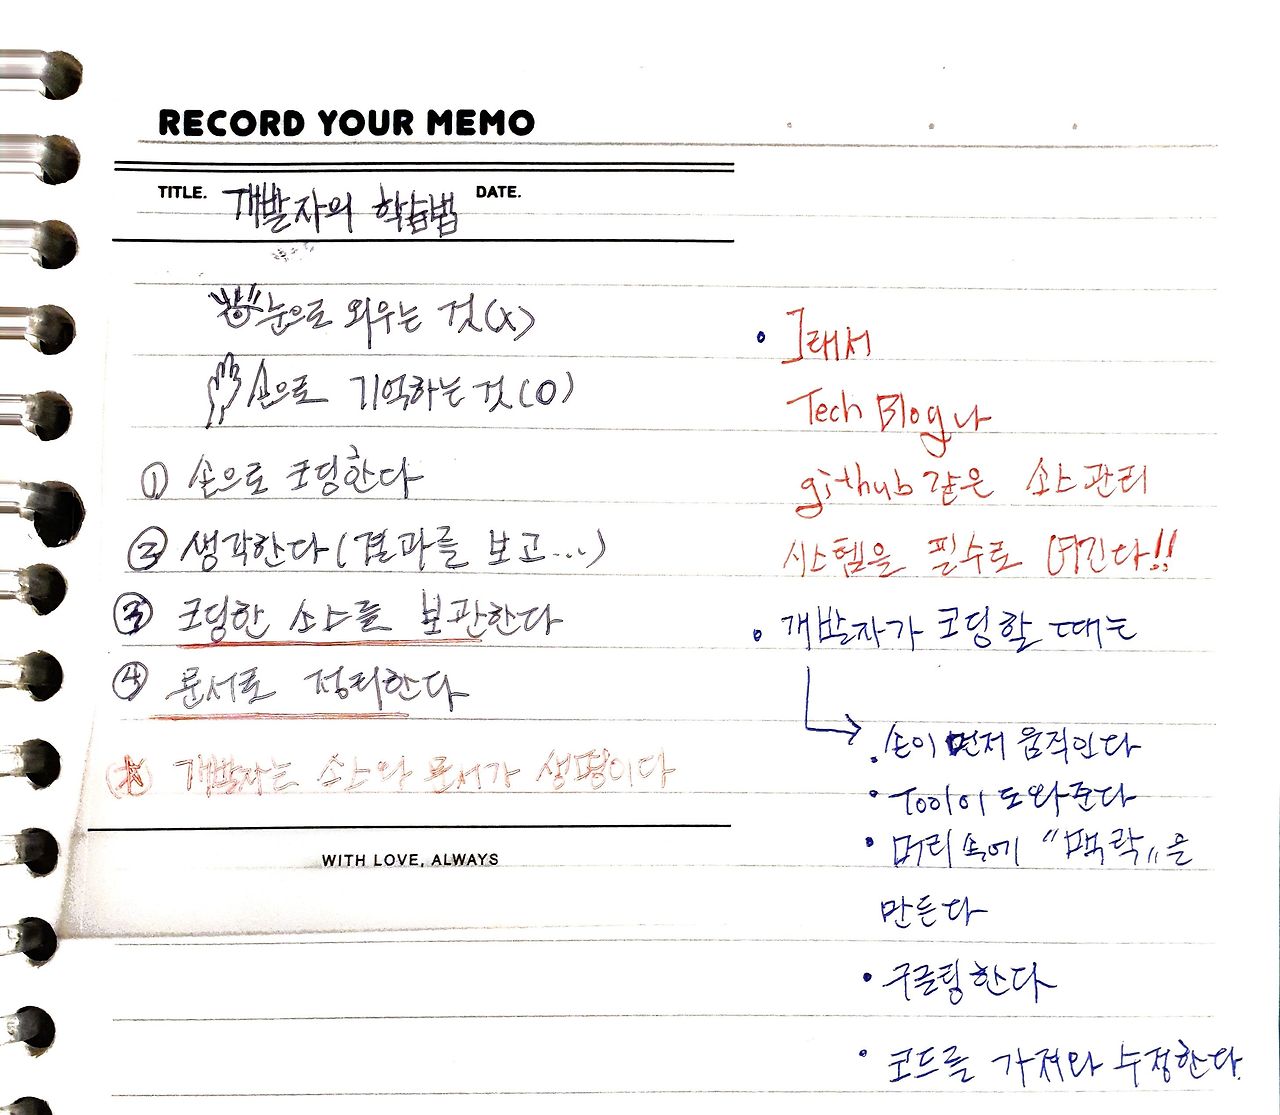 RECORD YOUR MEMO
TITLE. 개발자의 학습법 DATE.
눈으로 외우는 것(X)
손으로 기억하는 것(O)
① 손으로 코딩한다
② 생각한다(결과를 보고...)
③ 코딩한 소스를 보관한다
④ 문서로 정리한다
개발자는 소스와 문서가 생명이다
WITH LOVE, ALWAYS
• 그래서
Tech Blog나
github 같은 소스 관리
시스템을 필수로 여긴다!!
• 개발자가 코딩할 때는
• 손이 먼저 움직인다
• Tool이 도와준다
• 머리속에 "맥락"을
만든다
• 구글링한다
• 코드를 가져와 수정한다.